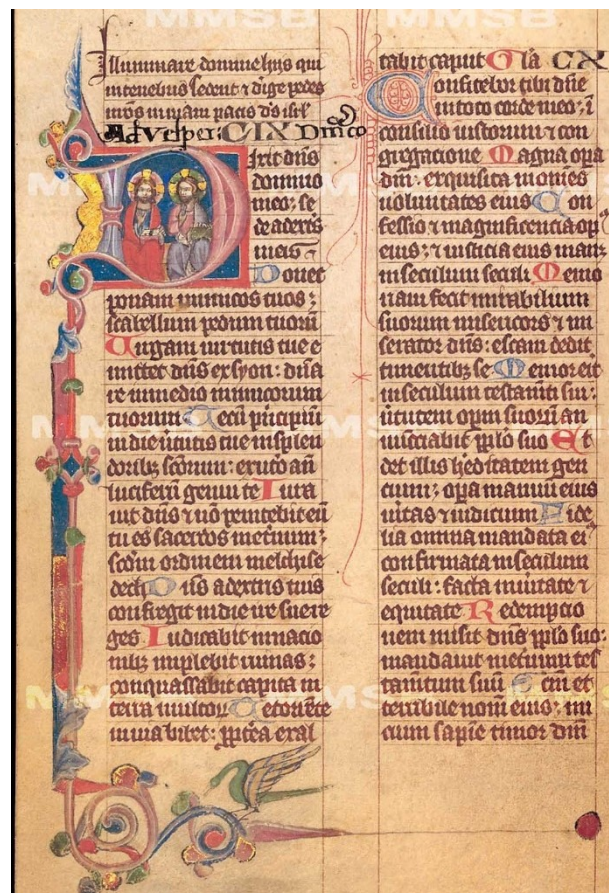 Illuminare domine hiis qui
intenebris sedent ⁊ dirige pedes
in uiam pacis ds isrl
Ad vesper: CIX Dmco
Dixit dns
domino
meo: se
de adextris
meis ⁊
Donec
ponam inimicos tuos:
scabellum pedum tuorum
Uirgam uirtutis tue e
mittet dns ex syon: dna
re inmedio inimicorum
tuorum Tecu principiu
in die uirtutis tue insplen
doribꝫ scorum: ex utero an
luciferu genui te Iura
uit dns ⁊ no penitebit eu
tu es sacerdos meternum:
scdm ordinem melchise
dech Dns adextris tuis
confregit in die ire sue re
ges Iudicabit innacio
nibꝫ implebit ruinas:
conquassabit capita in
terra multor De torrete
in uia bibet: propterea exal
tabit caput Gla CX
Confitebor tibi dne
intoto corde meo: i
consilio iustorum ⁊ con
gregacione Magna opa
dni: exquisita in omnes
uoluntates eius Con
fessio ⁊ magnificencia op
eius: ⁊ iusticia eius manꝫ
in seculum seculi Memo
riam fecit mirabilium
suorum misericors ⁊ mi
serator dns: escam dedit
timentibꝫ se Memor erit
in seculum testamti sui:
uirtutem opum suoru an
nuciabit pplo suo Et
det illis heditatem gen
cium: opa manuu eius
uitas ⁊ iudicium Fide
lia omnia mandata ei
confirmata in seculum
seculi: facta in uitate ⁊
equitate Redempcio
nem misit dns pplo suo:
mandauit in eternum tes
tamtum suu Scm et
terribile nom eius: ini
cium sapie timor dni